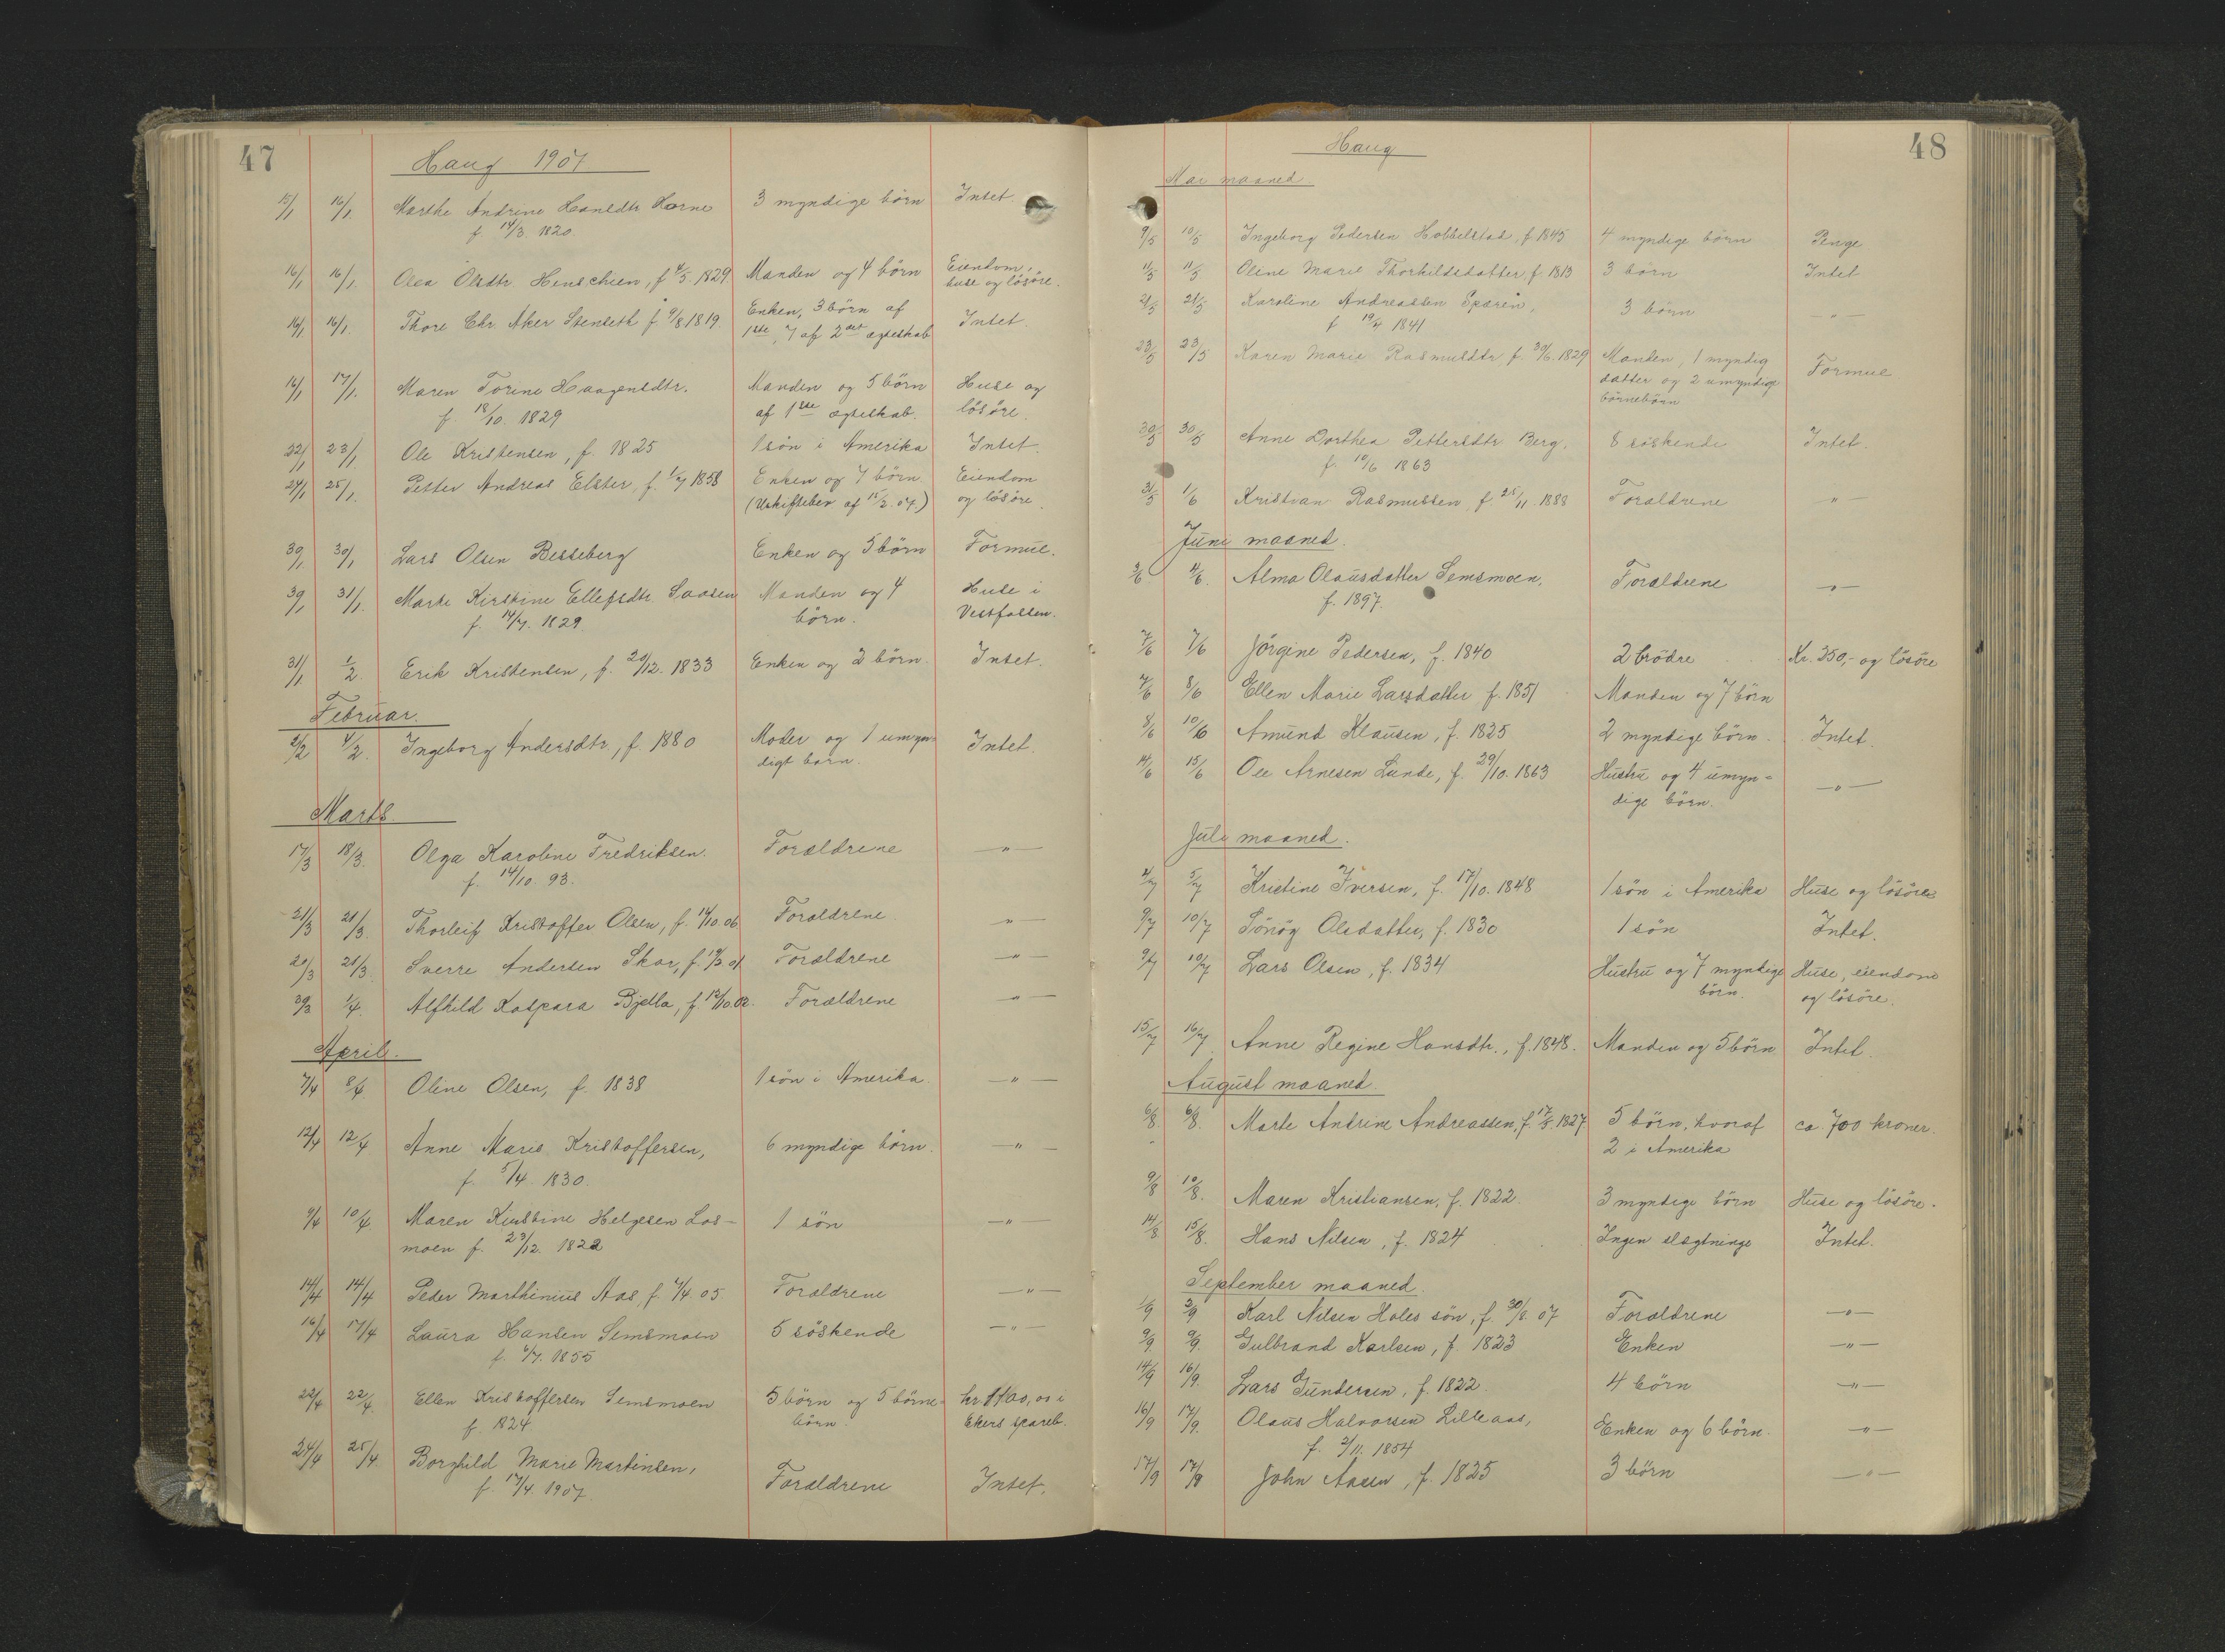 47
Haug 1907
15/1 16/1 Marthe Andrine Hansdtr Horne 3 myndige börn Intet.
f. 14/3. 1820.
16/1 16/1 Olea Olsdtr Henschien, f 4/5. 1829. Manden og 4 börn Eiendom,
huse og lösöre.
16/1 16/1. Thore Chr Aker Stenseth f. 9/8 1819. Enken, 3 börn af Intet.
1ste, 7 af 2det ægteskab
16/1 17/1. Maren Torine Haagensdtr. Manden og 5 börn Huse og
f. 18/10. 1829 af 1ste ægteskab. lösöre.
22/1 23/1 Ole Kristensen, f. 1825 1 sön i Amerika Intet.
24/1 25/1. Petter Andreas Elster, f. 1/7 1858 Enken og 7 börn. Eiendom
og lösöre.
30/1 30/1 Lars Olsen Besseberg Enken og 5 börn Formue.
30/1 31/1. Marte Kirstine Ellefsdtr. Saasen Manden og 4 Huse i
f. 14/7. 1829 börn. Vestfossen.
31/1 1/2. Erik Kristensen, f. 20/12. 1833 Enken og 2 börn. Intet.
Februar.
2/2 4/2. Ingeborg Andersdtr, f. 1880 Moder og 1 umyn- Intet.
digt barn.
Marts.
17/3 18/3. Olga Karoline Fredriksen. Forældrene — " —
f. 14/10. 93.
21/3 21/3. Thorleif Kristoffer Olsen, f. 14/10. 06 Forældrene. — " —
20/3 21/3. Sverre Andersen Skar, f. Forældrene — " —
30/3 1/4. Alfhild Kaspara Bjella, f. 12/10. 02. Forældrene — " —
April.
7/4 8/4. Oline Olsen, f. 1838 1 sön i Amerika. — " —
12/4 12/4 Anne Marie Kristoffersen, 6 myndige börn. — " —
f. 5/4. 1830.
9/4 10/4. Maren Kirstine Helgesen Los- 1 sön — " —
moen f. 23/12. 1822
14/4 14/4 Peder Marthinius Aas, f. 4/4. 05 Forældrene — " —
16/4 17/4 Laura Hansen Semsmoen 5 söskende — " —
f. 4/7. 1855
22/4 22/4. Ellen Kristoffersen Semsmoen 5 börn og 5 börne- kr 1100,00 i
f. 1824. börn. Ekers spareb.
24/4 25/4. Borghild Marie Martinsen,
f. 17/4. 1907. Forældrene Intet.
48
Haug
Mai maaned
9/5 10/5 Ingeborg Pedersen Hobbelstad, f 1845 4 myndige börn Penge
11/5 11/5 Oline Marie Thorkildsdatter, f. 1813 3 börn Intet
21/5 21/5 Karoline Andreassen Spæren, 3 börn — " —
f 19/4 1841
23/5 23/5 Karen Marie Rasmusdtr. f. 30/6. 1829 Manden, 1 myndig Formue
datter og 2 umyndige
börnebörn
30/5 30/5 Anne Dorthea Pettersdtr Berg. 8 söskende Intet.
f. 10/6 1863
31/5 1/6 Kristian Rasmussen, f. 25/11. 1888 Forældrene " —
Juni maaned.
3/6 4/6. Alma Olausdatter Semsmoen, Forældrene — " —
f. 1897.
7/6 7/6 Jörgine Pedersen, f. 1840 2 brödre Kr. 350,- og lösöre
7/6 8/6 Ellen Marie Larsdatter f. 1851 Manden og 7 börn
8/6 10/6 Amund Klausen, f. 1825 2 myndige börn. Intet.
14/6 15/6 Ole Arnesen Lunde, f. 29/10. 1863 Hustru og 4 umyn- — " —
dige börn.
Juli maaned.
4/7 5/7 Kristine Iversen, f. 17/10. 1848 1 sön i Amerika Huse og lösöre
9/7 10/7 Sönög Olsdatter, f. 1830 1 sön Intet.
9/7 10/7 Lars Olsen, f. 1834 Hustru og 7 myndige Huse, eiendom
börn. og lösöre.
15/7 16/7 Anne Regine Hansdtr., f. 1848. Manden og 5 börn Intet.
August maaned.
6/8 6/8. Marte Andrine Andreassen, f. 17/5. 1827 5 börn, hvoraf ca. 700 kroner.
2 i Amerika
9/8 10/8. Maren Kristiansen, f. 1822. 3 myndige börn Huse og lösöre.
14/8 15/8. Hans Nilsen, f. 1824 Ingen slægtninge Intet.
September maaned.
1/9 2/9 Karl Nilsen Holes sön, f. 30/8. 07 Forældrene — " —
9/9. 9/9. Gulbrand Karlsen, f. 1823 Enken — " —
14/9 16/9. Lars Gundersen, f. 1822. 4 börn — " —
16/9 17/9. Olaus Halvorsen Lilleaas, Enken og 6 börn. — " —
f. 2/11. 1854
17/9 17/9 John Aasen, f. 1825 3 börn — " —